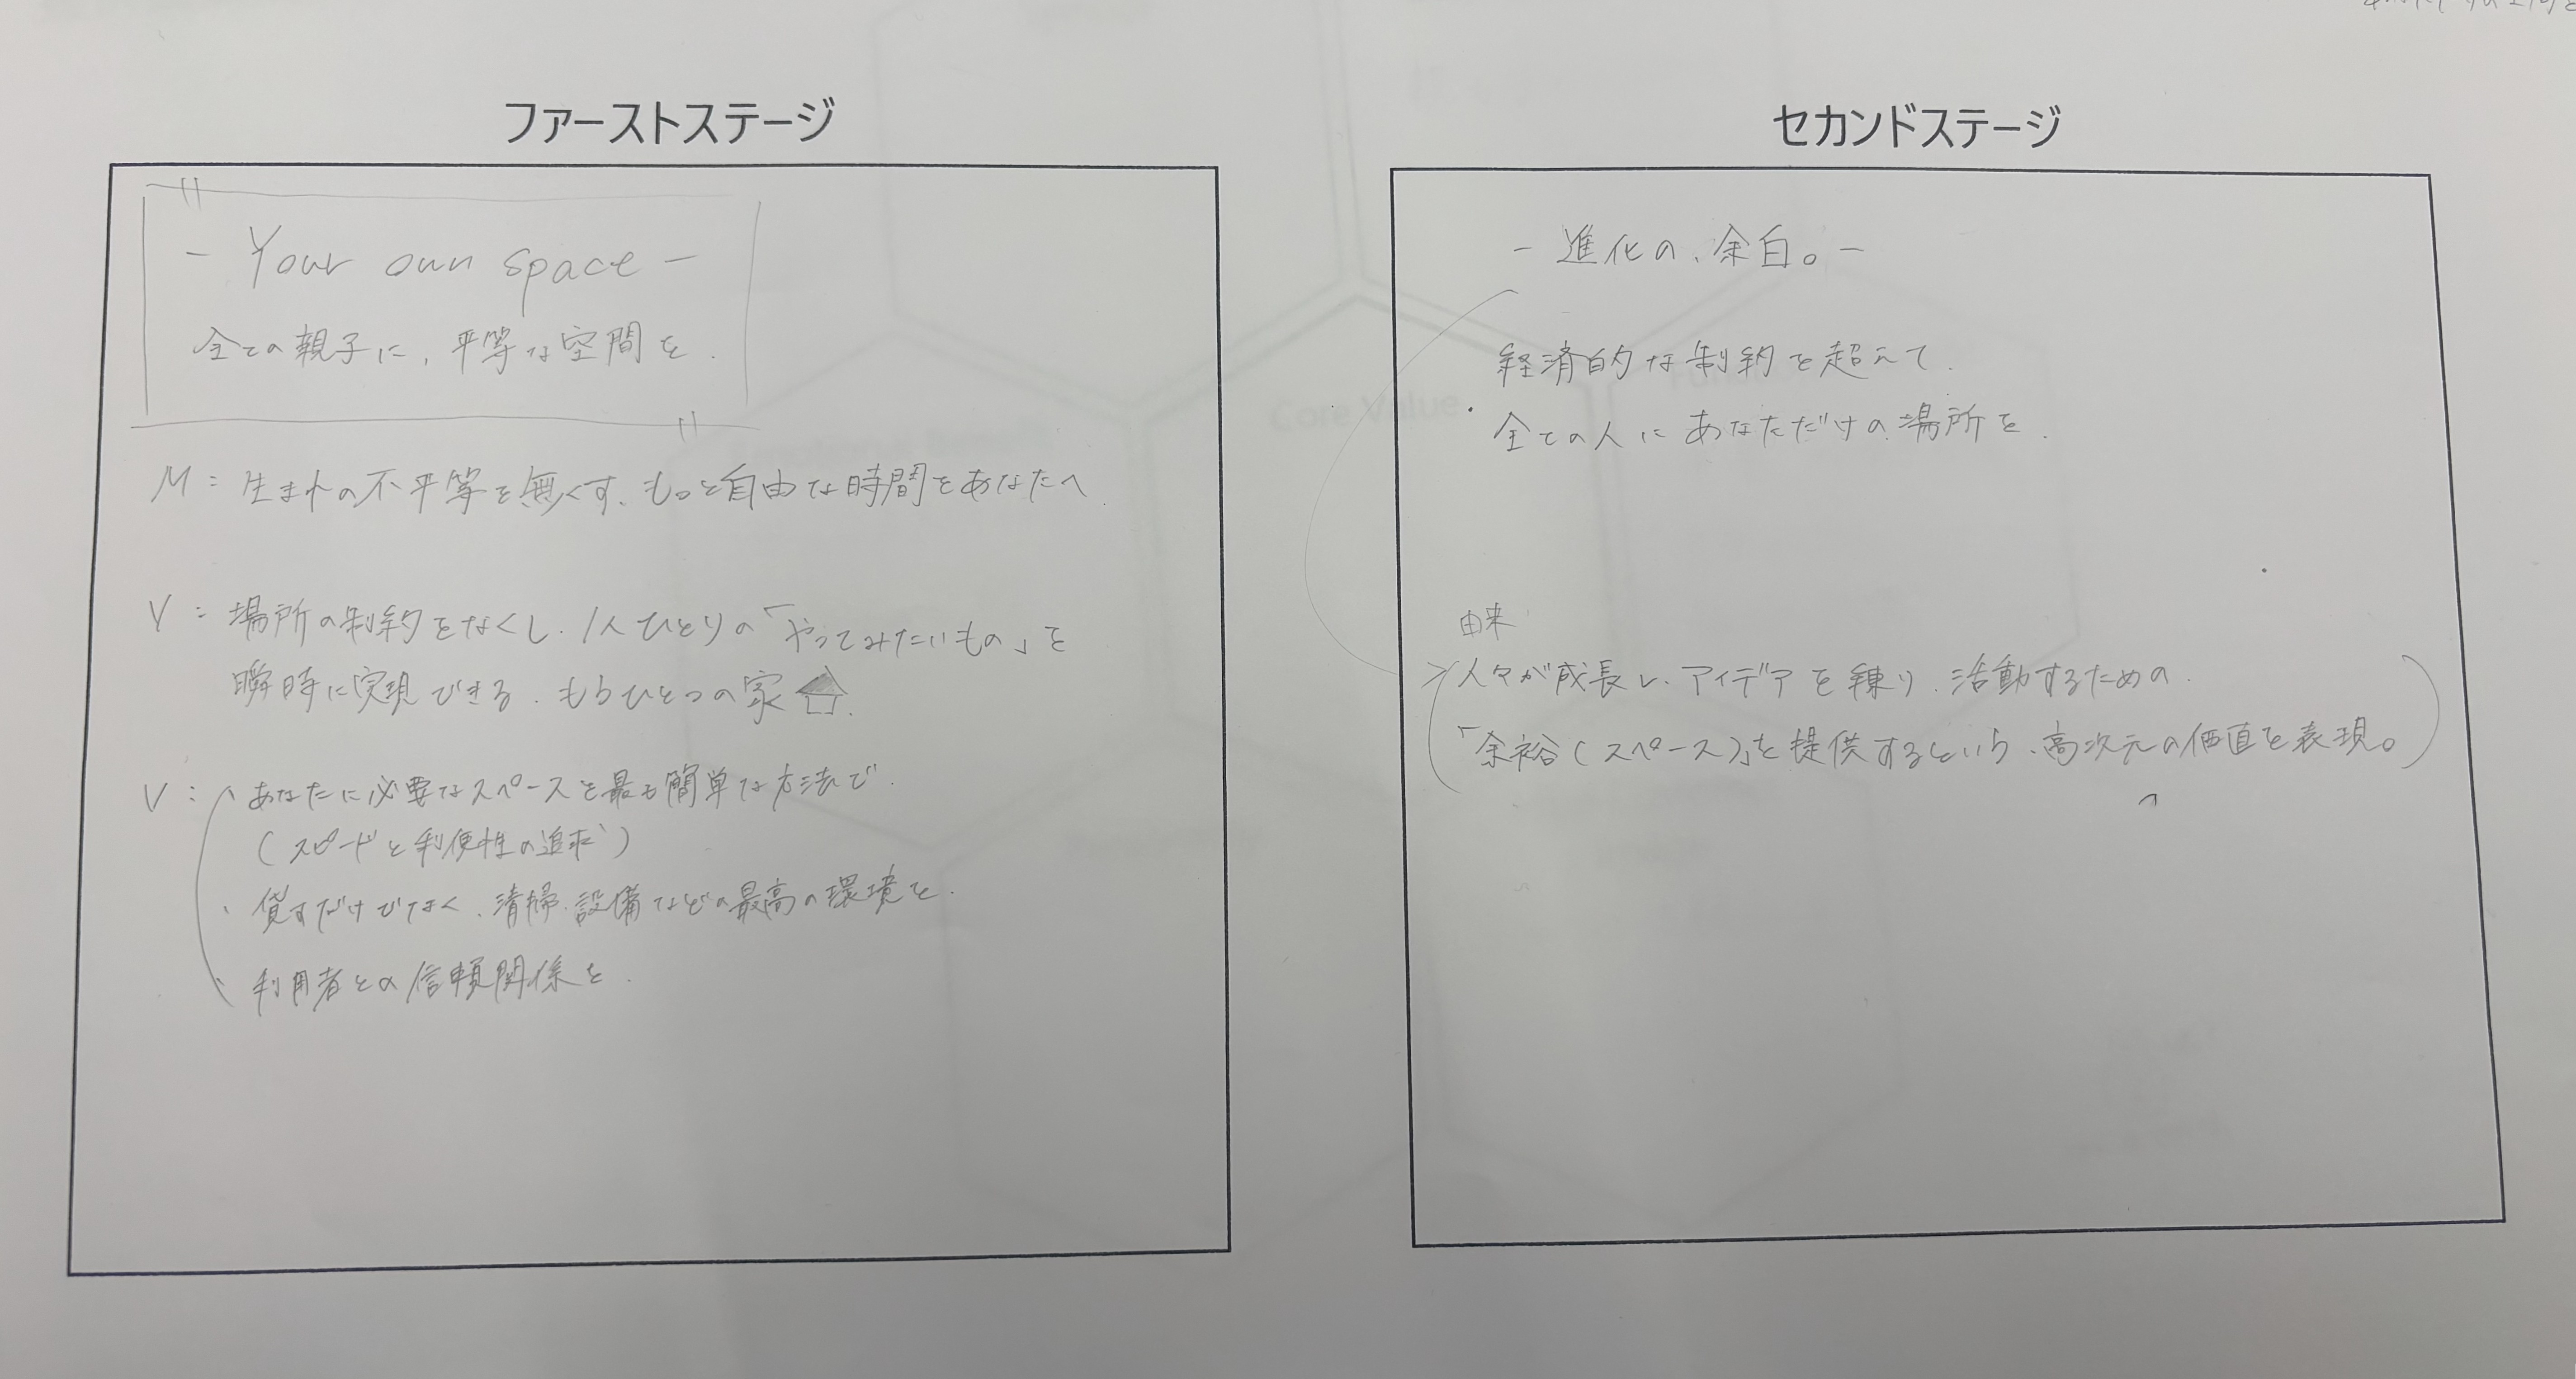 ファーストステージ
- Your own space -
全ての親子に、平等な空間を.
M : 生まれの不平等を無くす、もっと自由な時間をあなたへ.
V : 場所の制約をなくし、1人ひとりの「やってみたいもの」を
瞬時に実現できる、もうひとつの家
V : ・あなたに必要なスペースを最も簡単な方法で.
(スピードと利便性の追求)
・貸すだけでなく、清掃、設備などの最高の環境を.
・利用者との信頼関係を.
セカンドステージ
- 進化の、余白。-
経済的な制約を超えて.
全ての人にあなただけの場所を.
由来
人々が成長し、アイデアを練り、活動するための.
「余裕(スペース)」を提供するという、高次元の価値を表現。
Core Value